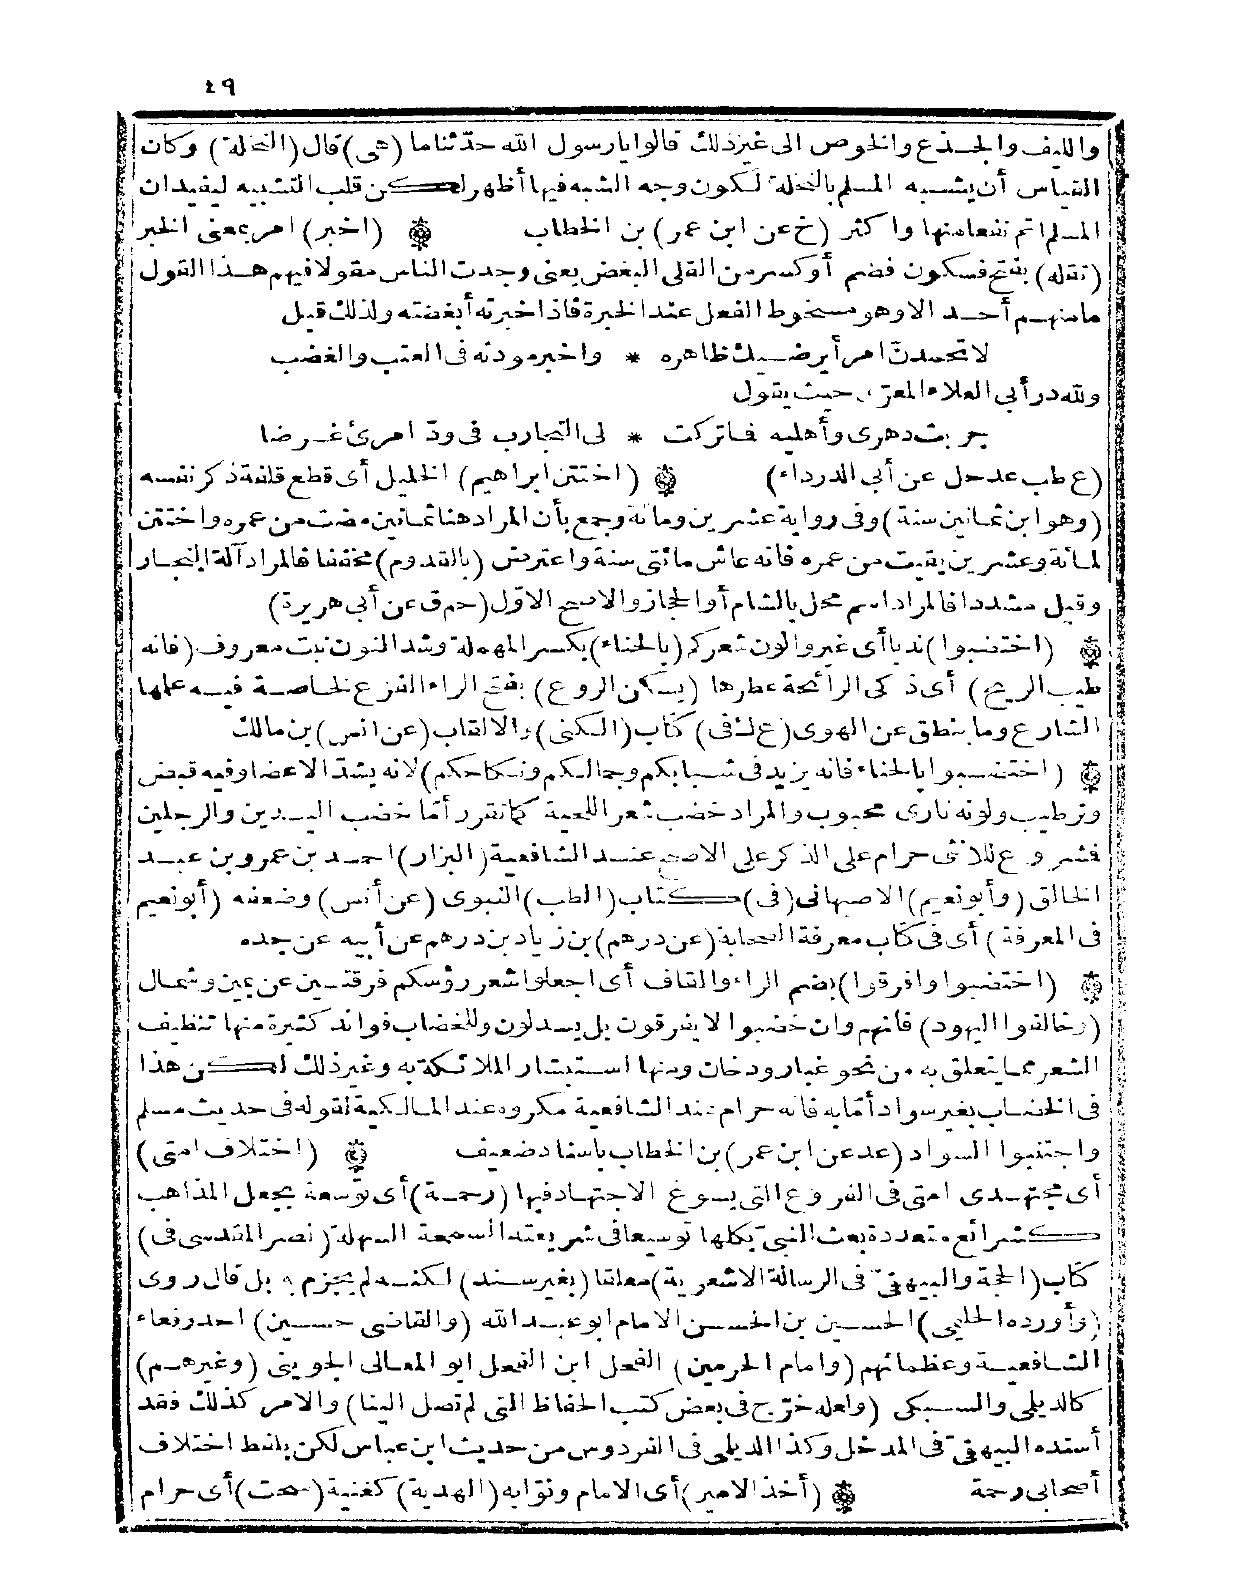 ٤٩
والليف والجذع والخوص الى غير ذلك قالوا يا رسول الله حدثنا ما (هى) قال (النخلة) وكان
القياس أن يشبه المسلم بالنخلة لكون وجه الشبه فيها أظهر لكن قلب التشبيه ليفيد ان
المسلم اتم نفعا منها واكثر (خ عن ابن عمر) بن الخطاب ۞ (اخبر) امر بمعنى الخبر
(تقله) بفتح فسكون فضم أو كسر من القلى البغض يعنى وجدت الناس مقولا فيهم هذا القول
ما منهم أحد الا وهو مسخوط الفعل عند الخبرة فاذا خبرته أبغضته ولذلك قيل
لا تحمدن امرأ يرضيك ظاهره * واخبر مودته فى العتب والغضب
ولله در أبى العلاء المعرى حيث يقول
جربت دهرى وأهليه فما تركت * لى التجارب فى ود امرئ غرضا
(ع طب عد حل عن أبى الدرداء) ۞ (اختتن ابراهيم) الخليل أى قطع قلفة ذكر نفسه
(وهو ابن ثمانين سنة) وفى رواية عشرين ومائة وجمع بأن المراد هنا ثمانين مضت من عمره واختتن
لمائة وعشرين بقيت من عمره فانه عاش مائتى سنة واعترض (بالقدوم) مخففا فالمراد آلة النجار
وقيل مشددا فالمراد اسم محل بالشام أو الحجاز والاصح الاول (حم ق عن أبى هريرة)
۞ (اختضبوا) ندبا أى غيروا لون شعركم (بالحناء) بكسر المهملة وشد النون نبت معروف (فانه
طيب الريح) أى ذكى الرائحة عطرها (يسكن الروع) بفتح الراء الفزع لخاصية فيه علمها
الشارع وما ينطق عن الهوى (ع ك فى) كتاب (الكنى) والالقاب (عن انس) بن مالك
۞ (اختضبوا بالحناء فانه يزيد فى شبابكم وجمالكم ونكاحكم) لانه يشد الاعضا وفيه قبض
وترطيب ولونه نارى محبوب والمراد خضب شعر اللحية كما تقرر أما خضب اليدين والرجلين
فمشروع للانثى حرام على الذكر على الاصح عند الشافعية (البزار) احمد بن عمرو بن عبد
الخالق (وأبو نعيم) الاصبهانى (فى) كتاب (الطب) النبوى (عن أنس) وضعفه (أبو نعيم
فى المعرفة) أى فى كتاب معرفة الصحابة (عن درهم) بن زياد بن درهم عن أبيه عن جده
۞ (اختضبوا وافرقوا) بضم الراء والقاف أى اجعلوا شعر رؤسكم فرقتين عن يمين وشمال
(وخالفوا اليهود) فانهم وان خضبوا لا يفرقون بل يسدلون وللخضاب فوائد كثيرة منها تنظيف
الشعر مما يتعلق به من نحو غبار ودخان ومنها استبشار الملائكة به وغير ذلك لكن هذا
فى الخضاب بغير سواد أما به فانه حرام عند الشافعية مكروه عند المالكية لقوله فى حديث مسلم
واجتنبوا السواد (عد عن ابن عمر) بن الخطاب باسناد ضعيف ۞ (اختلاف امتى)
أى مجتهدى امتى فى الفروع التى يسوغ الاجتهاد فيها (رحمة) أى توسعة بجعل المذاهب
كشرائع متعددة بعث النبى بكلها توسيعا فى شريعته السمحة السهلة (نصر المقدسى فى)
كتاب (الحجة والبيهقى فى الرسالة الاشعرية) معلقا (بغير سند) لكنه لم يجزم به بل قال روى
(وأورده الحليمى) الحسين بن الحسن الامام ابو عبد الله (والقاضى حسين) احد رفعاء
الشافعية وعظمائهم (وامام الحرمين) الفحل ابن الفحل ابو المعالى الجوينى (وغيرهم)
كالديلمى والسبكى (ولعله خرج فى بعض كتب الحفاظ التى لم تصل الينا) والامر كذلك فقد
أسنده البيهقى فى المدخل وكذا الديلمى فى الفردوس من حديث ابن عباس لكن بلفظ اختلاف
أصحابى رحمة ۞ (أخذ الامير) أى الامام ونوابه (الهدية) كغنية (سحت) أى حرام